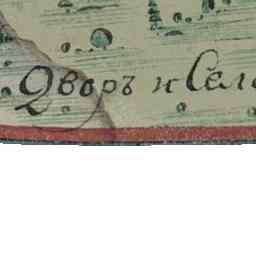 Дворъ и Сел